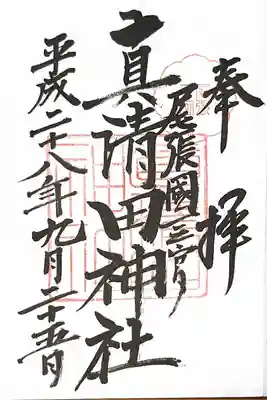 奉拝
尾張國三宮
真清田神社
平成二十八年九月二十五日